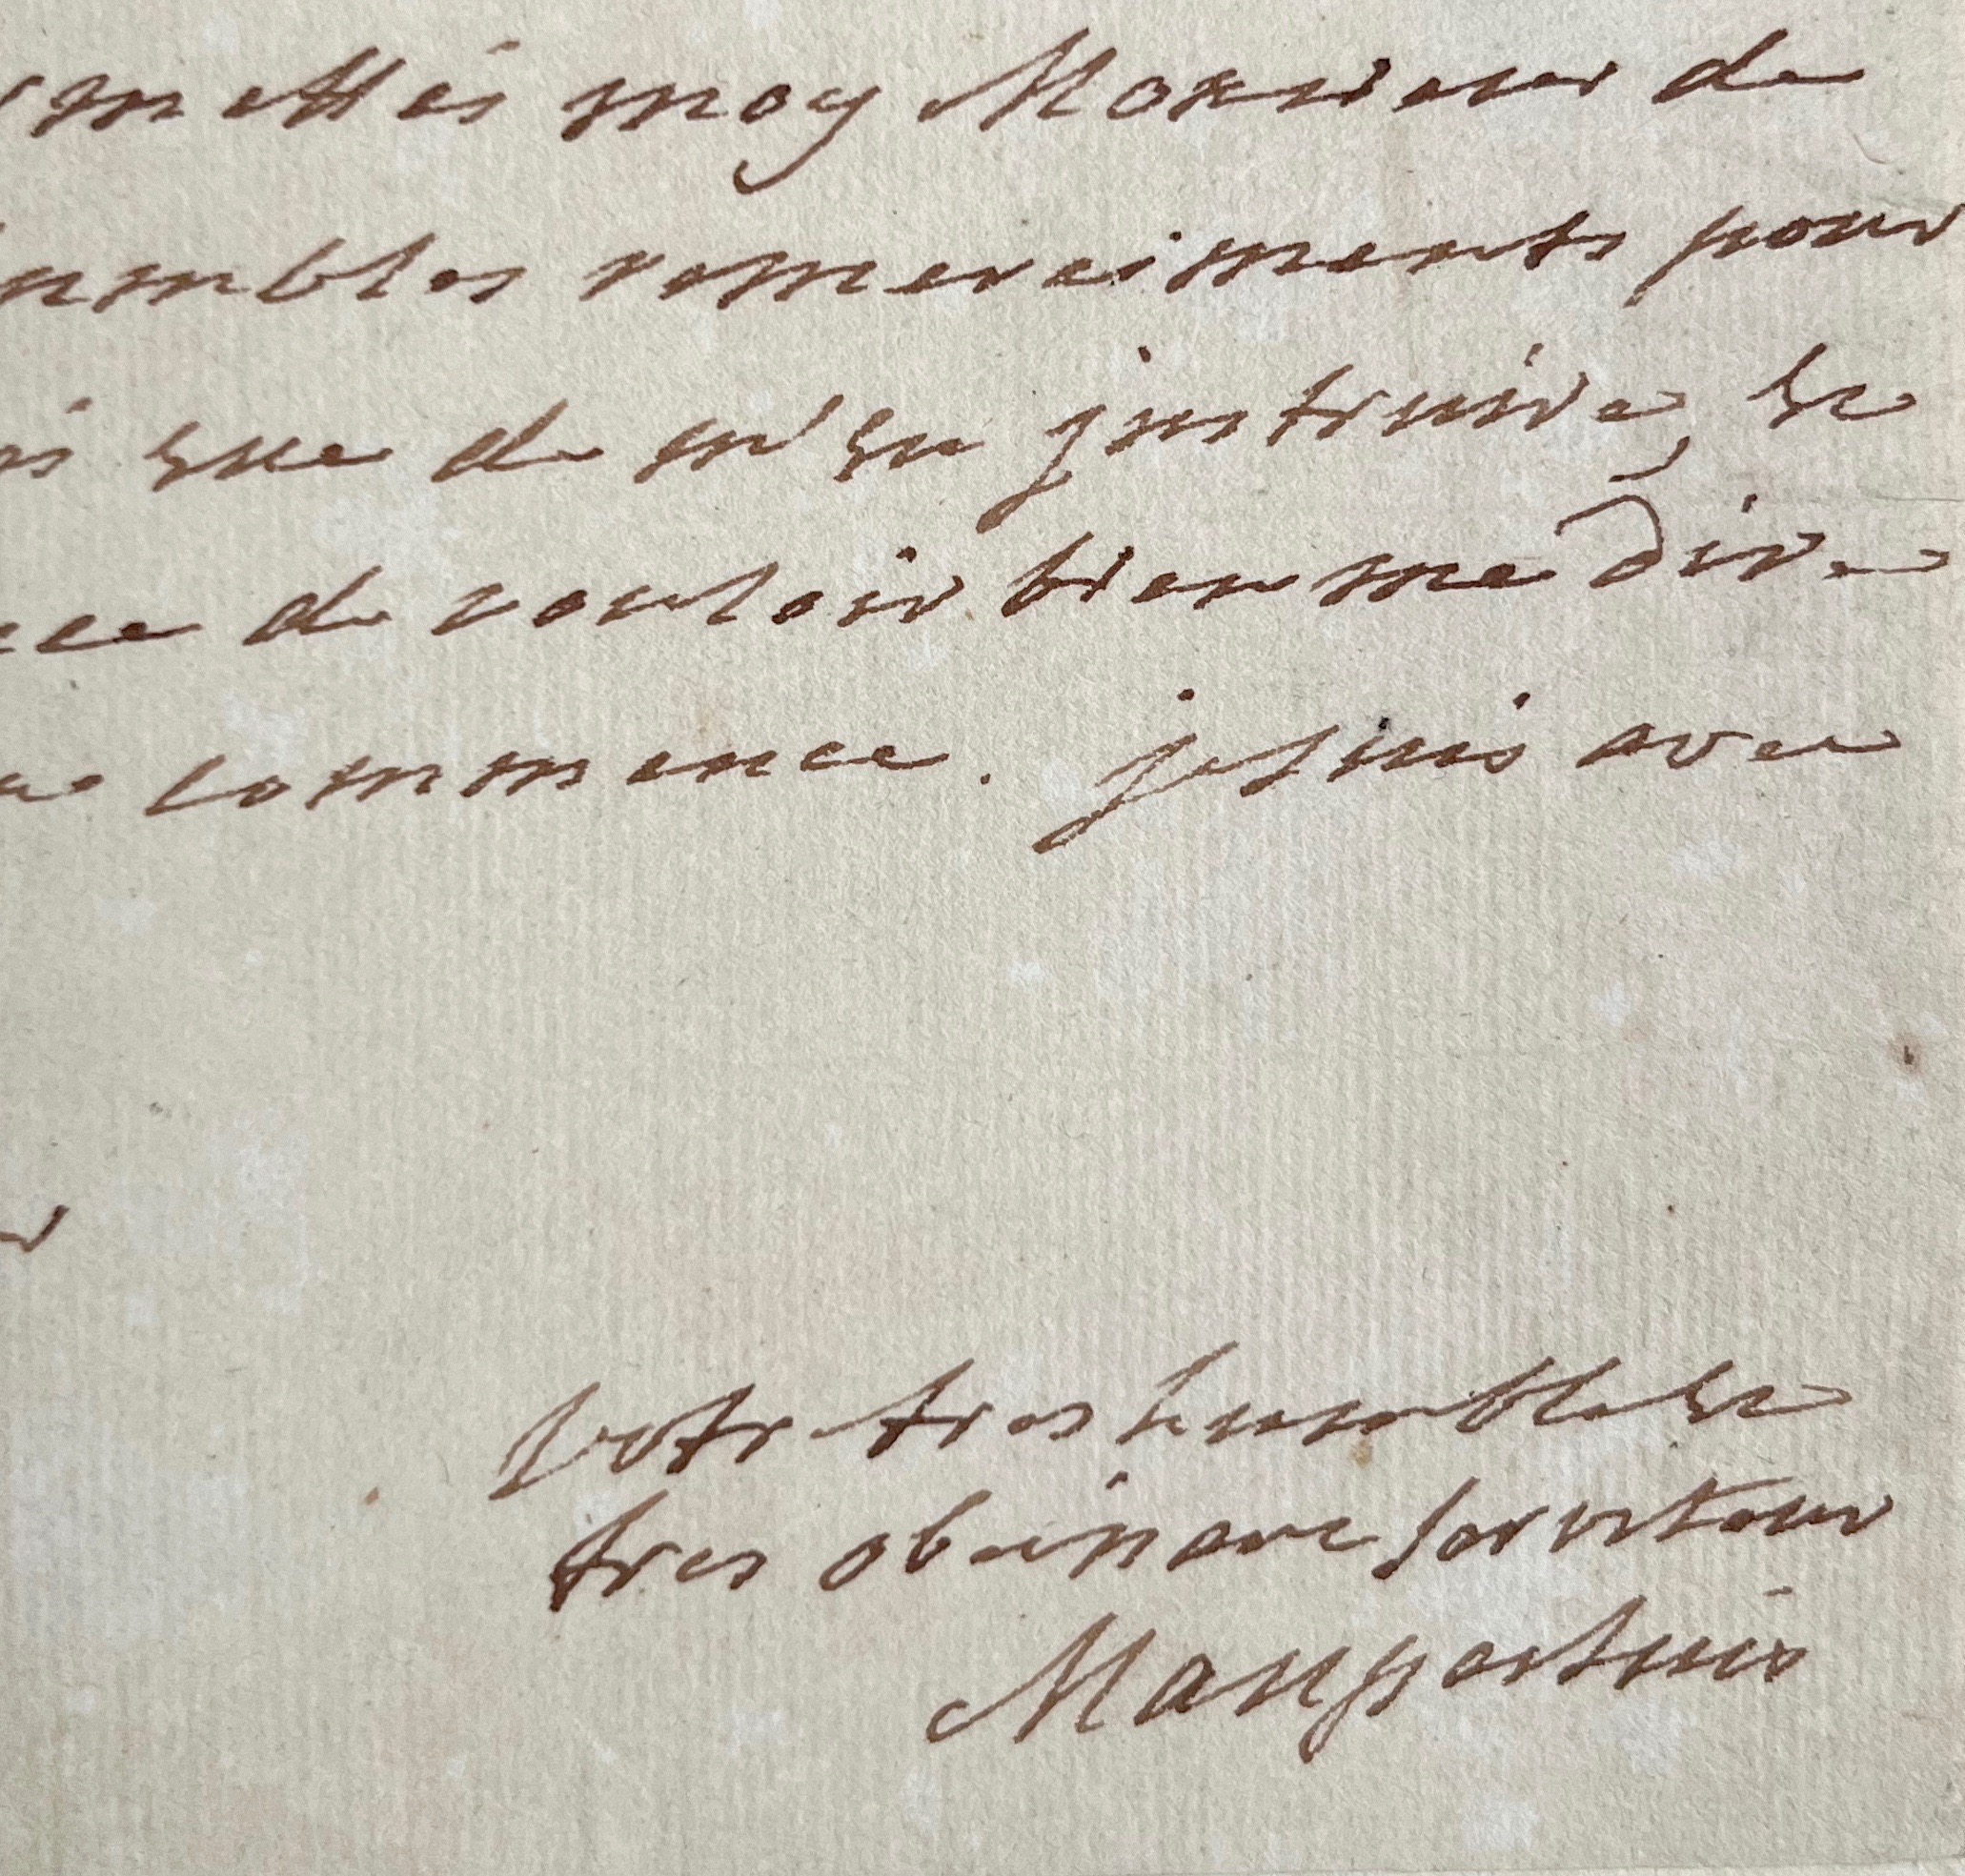 rmettes moy Monsieur de
umbles remerciments pour
que de m'en jnstruire, et
ce de vouloir bien me dire
commence. je suis avec
r
votre tres humble et
tres obeissant serviteur
Maupertuis